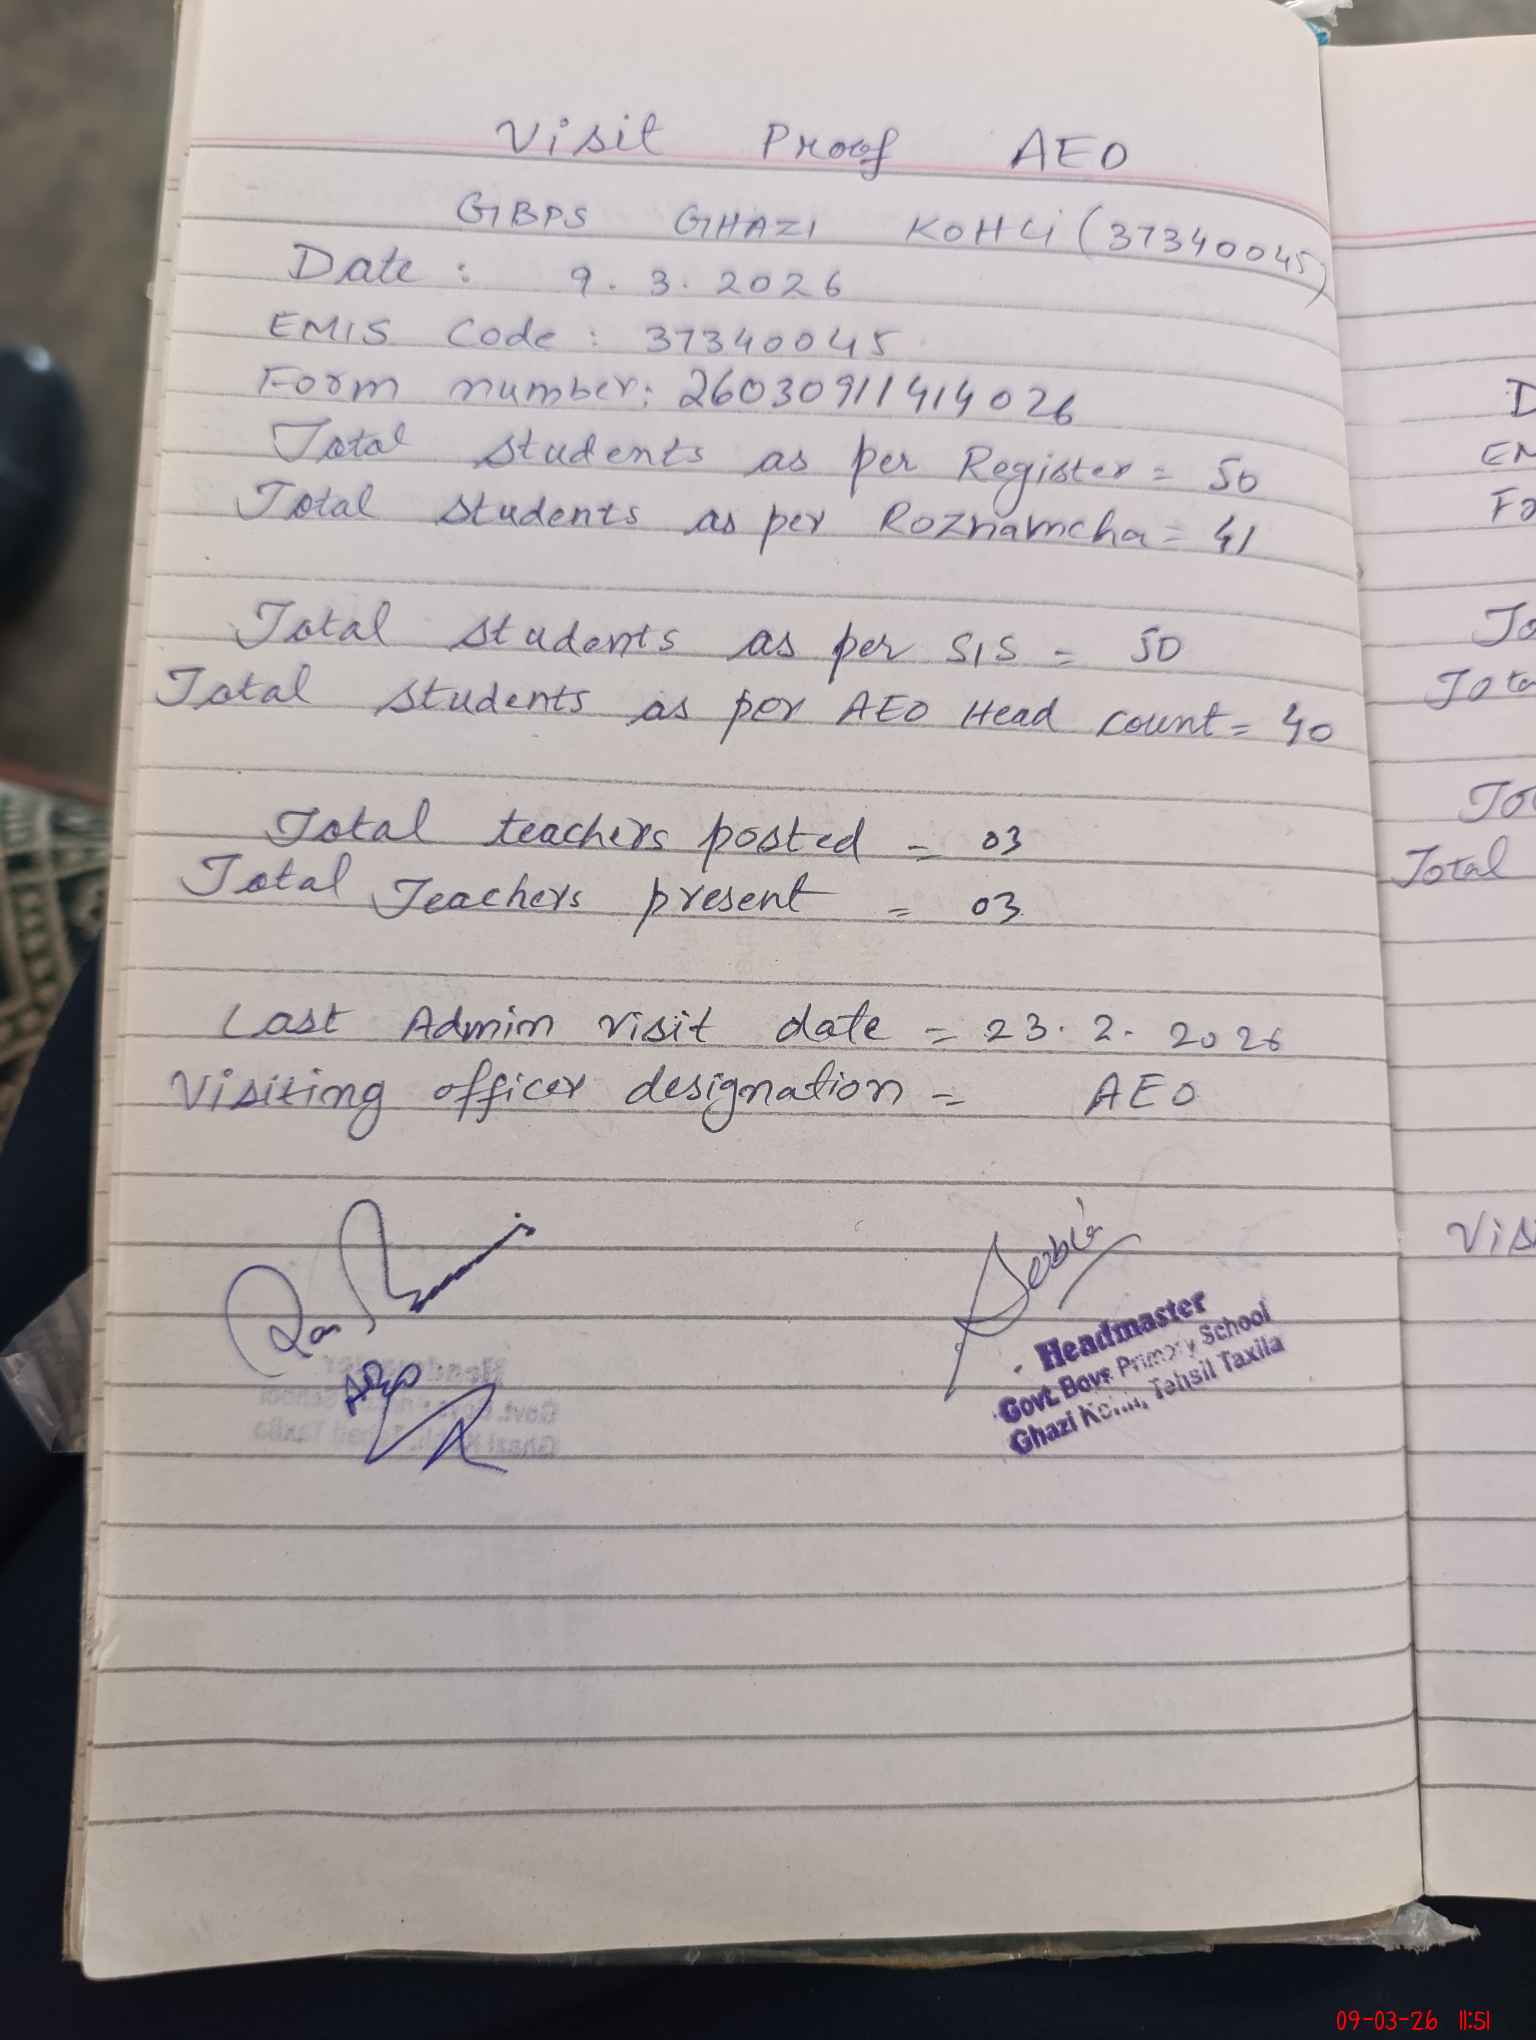 Visit Proof AEO
GBPS GHAZI KOHLi (37340045)
Date : 9.3.2026
EMIS Code : 37340045
Form number: 26030911414026
Total students as per Register = 50
Total students as per Roznamcha = 41
Total students as per SIS = 50
Total students as per AEO Head count = 40
Total teachers posted = 03
Total Teachers present = 03
Last Admin visit date = 23.2.2026
Visiting officer designation = AEO
Headmaster
Govt. Boys Primary School
Ghazi Kohli, Tehsil Taxila
D
EM
Fo
To
Tota
To
Total
Visi
09-03-26 11:51